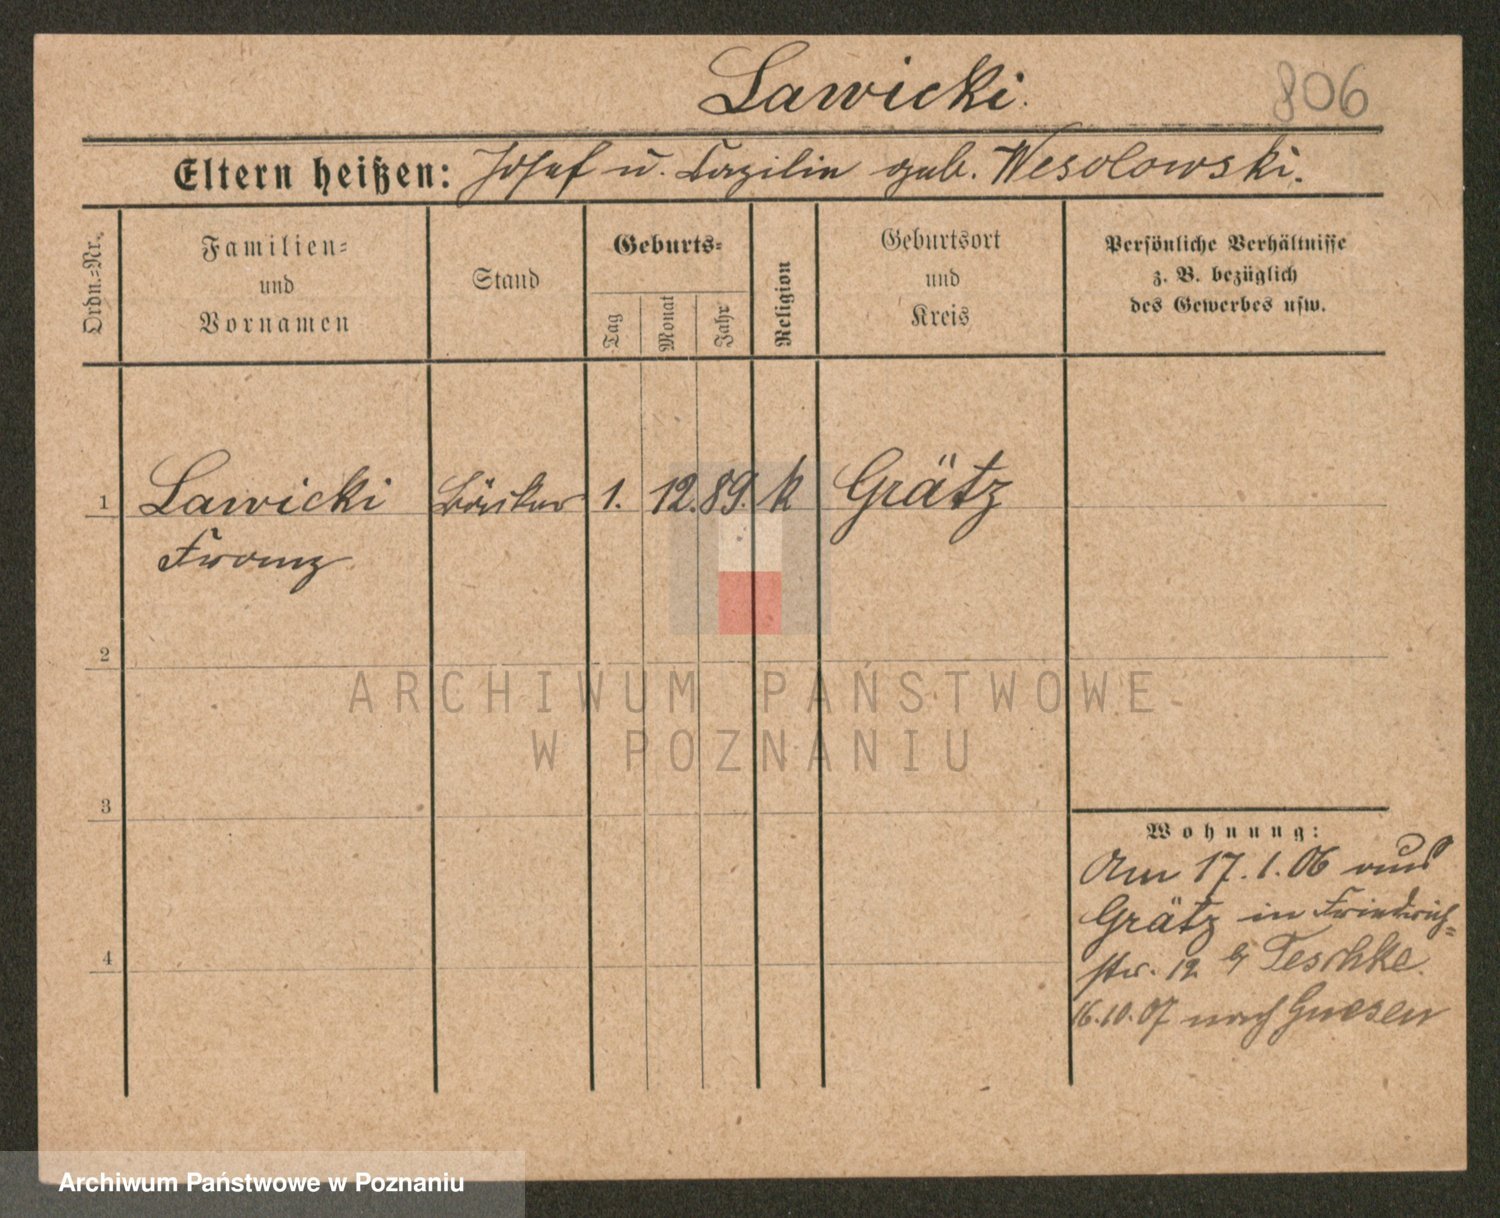 Lawicki.
806
Eltern heißen: Josef u. Cezilie geb. Wesolowski.
Ordn.=Nr.
Familien=
und
Vornamen
Stand
Geburts=
Tag
Monat
Jahr
Religion
Geburtsort
und
Kreis
Persönliche Verhältnisse
z. B. bezüglich
des Gewerbes usw.
1 Lawicki 1. 12. 89. k Grätz
Franz
2
3
4
Wohnung:
Am 17.1.06 aus
Grätz in Friedrich=
str. 12 b/ Teschke.
16.10.07 nach Gnesen
ARCHIWUM PAŃSTWOWE
W POZNANIU
Archiwum Państwowe w Poznaniu